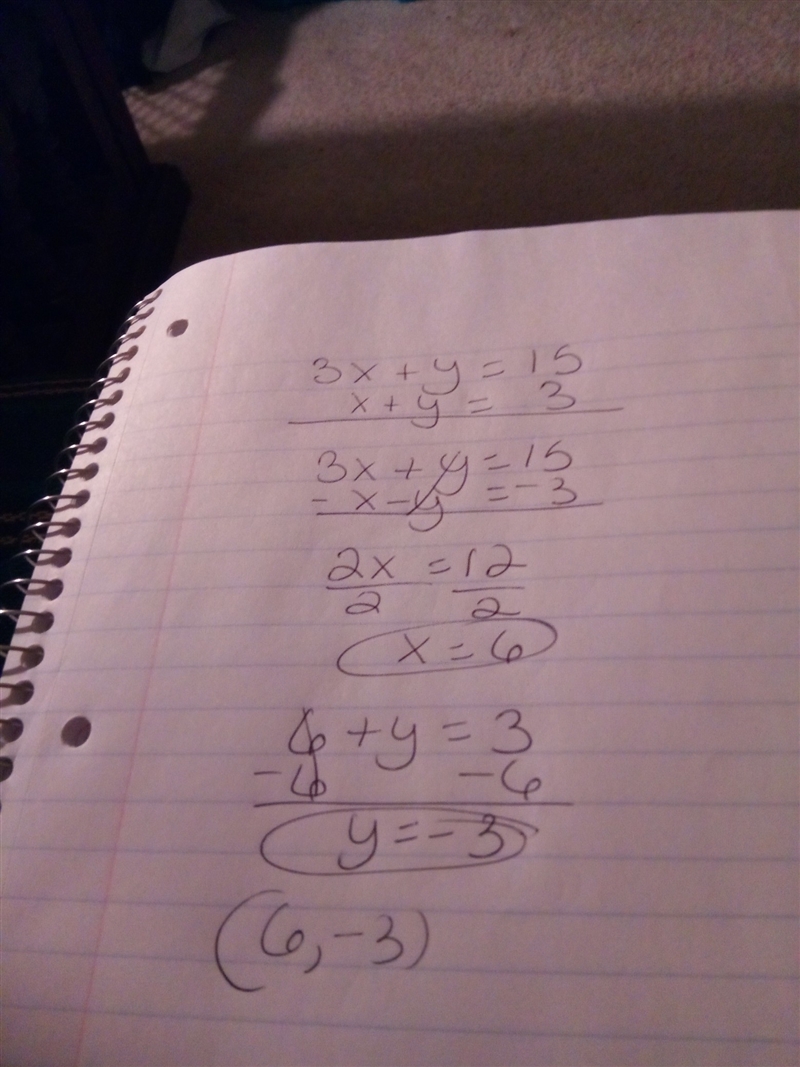 3x + y = 15
x + y = 3
3x + y = 15
- x - y = -3
2x = 12
2 2
x = 6
6 + y = 3
-6 -6
y = -3
(6, -3)